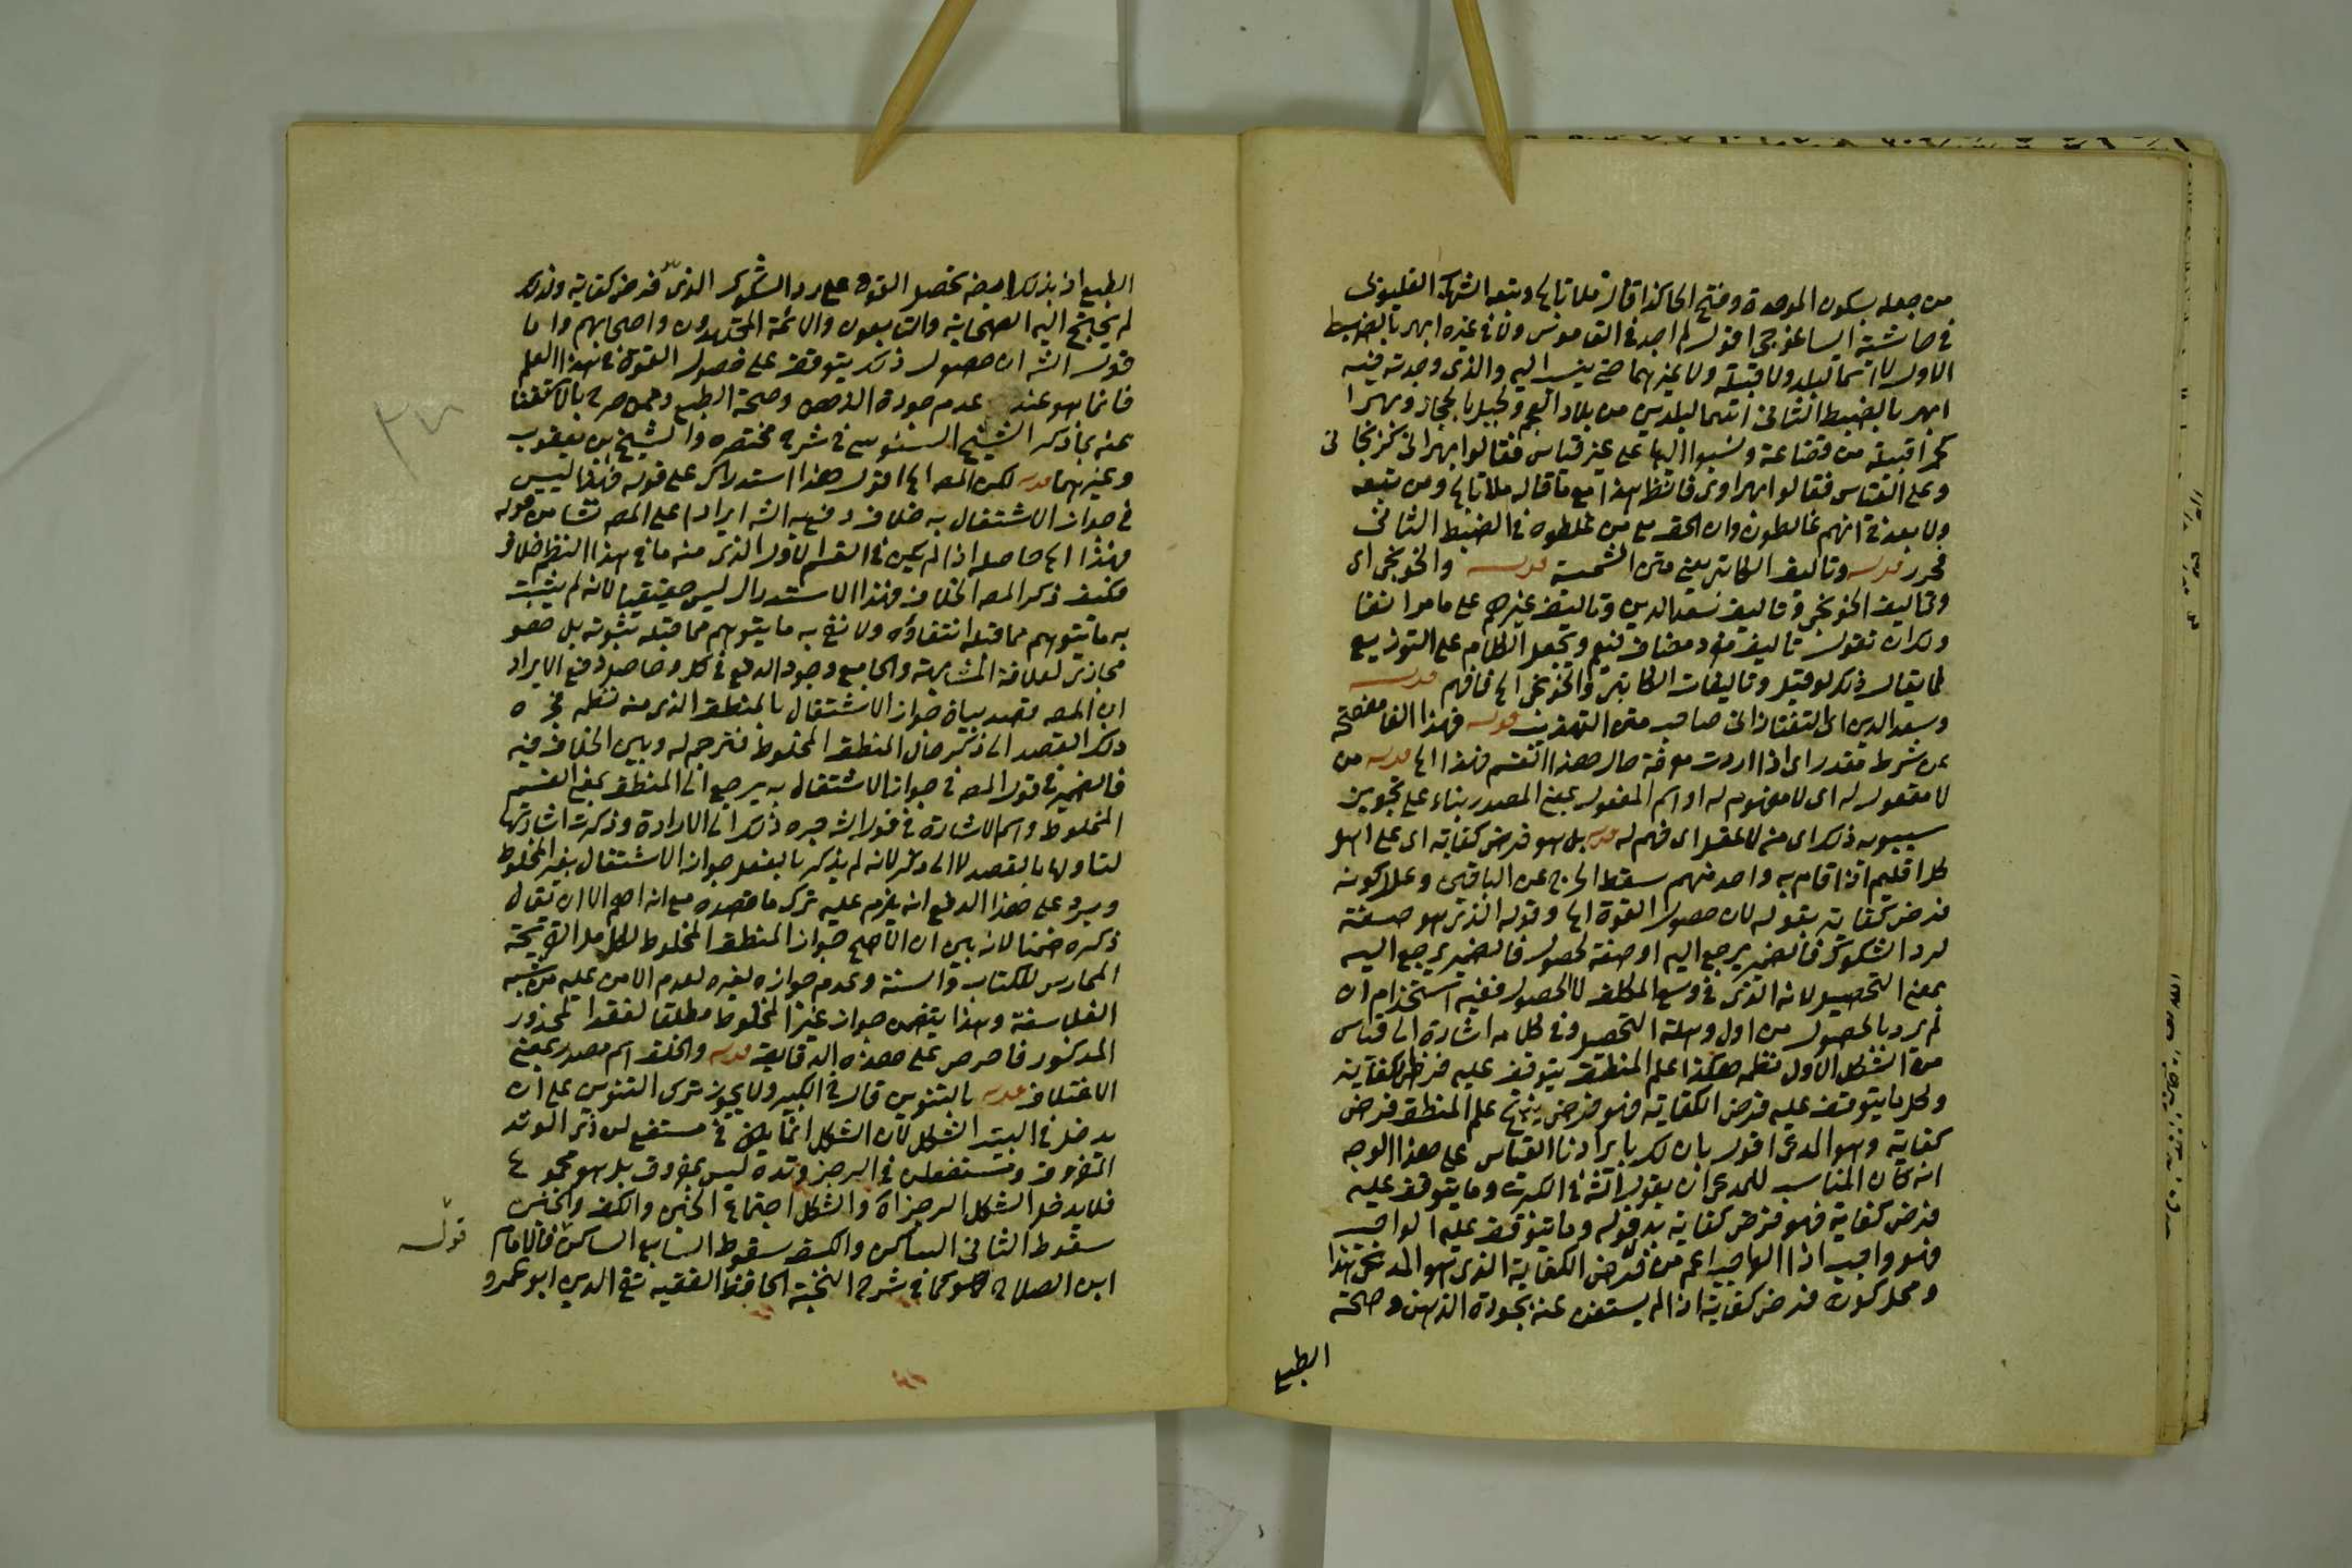 من جعله بسكون الموحدة وفتح الها كذا قال ملا تابا وتبعه الشهاب القليوبى
فى حاشية ايساغوجى اقول لم اجد فى القاموس ولا فى غيره ابهر بالضبط
الاول لا اسما لبلد ولا قبيلة ولا غيرهما حتى ينسب اليه والذى وجدته فيه
ابهر بالضبط الثانى اسما لبلدين من بلاد العجم ولجبل بالحجاز وبهرا
كحمراء قبيلة من قضاعة ونسبوا اليها على غير قياس فقالوا بهرانى
وعلى القياس فقالوا بهراوى فانظر هذا مع ما قاله ملا تابا ومن تبعه
ولا بعد فى انهم غالطون وان الحق مع من غلطوه فى الضبط الثانى
فحرر قوله وتاليف الكاتبى يعنى متن الشمسية قوله والخونجى اى
وتاليف الخونجى وتاليف سعد الدين وتاليف غيرهم على ما مر انفا
ولك ان تقول تاليف مفرد مضاف فيعم ويجعل الكلام على التوزيع
كما يقال ذلك لو قيل وتاليفات الكاتبى والخونجى الخ فافهم قوله
وسعد الدين اى التفتازانى صاحب متن التهذيب قوله فهذا الفا مفصحة
عن شرط مقدر اى اذا اردت معرفة حال هذا القسم فهذا الخ قوله من
لا معقول له اى لا مفهوم له او اسم المفعول بمعنى المصدر بناء على تجويز
سيبويه ذلك اى من لا عقل اى فهم له قوله بل هو فرض كفاية اى على اهل
كل اقليم اذا قام به واحد منهم سقط الحرج عن الباقين وعلل كونه
فرض كفاية بقوله لان حصول القوة الخ وقوله الذى هو صفة
لرد الشكوك فالضمير يرجع اليه او صفة لحصول فالضمير يرجع اليه
بمعنى التحصيل لانه الذى فى وسع المكلف لا الحصول ففيه استخدام ان
لم يرد بالحصول من اول وهلة التحصيل وفى كلامه اشارة الى قياس
من الشكل الاول نظمه هكذا علم المنطق يتوقف عليه فرض كفاية
وكل ما يتوقف عليه فرض الكفاية فهو فرض ينتج علم المنطق فرض
كفاية وهو المدعى اقول بان لك بايرادنا القياس على هذا الوجه
انه كان المناسب للمدعى ان يقول الش فى الكبرى وما يتوقف عليه
فرض كفاية فهو فرض كفاية بدل قوله وما يتوقف عليه الواجب
فهو واجب اذ الواجب اعم من فرض الكفاية الذى هو المدعى هذا
ومحل كونه فرض كفاية اذا لم يستغن عنه بجودة الذهن وصحة
الطبع
الطبع اذ بذلك ايضا تحصل القوة على رد الشكوك الذى فرض كفاية ولذلك
لم يحتج اليه الصحابة والتابعون والائمة المجتهدون واصحابهم واما
قول الش ان حصول ذلك يتوقف على حصول القوة فى هذا العلم
فانما هو عند عدم جودة الذهن وصحة الطبع وممن صرح بالاستغنا
عنه بما ذكر الشيخ السنوسى فى شرح مختصره والشيخ بن يعقوب
وغيرهما قوله لكن المص الخ اقول هذا استدراك على قوله فهذا ليس
فى جواز الاشتغال به خلاف دفع به الش ايرادا على المص نشا من قوله
فهذا الخ حاصله اذا لم يكن فى القسم الاول الذى منه ما فى هذا النظم خلاف
فكيف ذكر المص الخلاف فهذا الاستدراك ليس حقيقيا لانه لم يثبت
به ما يتوهم مما قبله انتفاؤه ولا نفى به ما يتوهم مما قبله ثبوته بل هو
مجازى لعلاقة المشابهة والجامع وجود الدفع فى كل وحاصل دفع الايراد
ان المص قصد بيان جواز الاشتغال بالمنطق الذى منه نظمه فجره
ذلك القصد الى ذكر حال المنطق المخلوط فترجم له وبين الخلاف فيه
فالضمير فى قول المص فى جواز الاشتغال به يرجع الى المنطق بمعنى القسم
المخلوط واسم الاشارة فى قول الش جره ذلك الى الارادة وذكرت اشارتها
لتاولها بالقصد لا الى ذكر لانه لم يذكر بالفعل جواز الاشتغال بغير المخلوط
ويرد على هذا الدفع انه يلزم عليه ترك ما قصده مع انه اهم الا ان يقال
ذكره ضمنا لانه بين ان الاصح جواز المنطق المخلوط لكامل القريحة
الممارس للكتاب والسنة وعدم جوازه لغيره لعدم الامن عليه من شبه
الفلاسفة وهذا يتضمن جواز غير المخلوط مطلقا لفقد المحذور
المذكور فاحرص على هذه الدقايق قوله والخلف اسم مصدر بمعنى
الاختلاف قوله بالتنوين قال فى الكبير ولا يجوز ترك التنوين على ان
يدخل فى البيت الشكل لان الشكل انما يكون فى مستفع لن ذى الوتد
المفروق ومستفعلن فى الرجز وتده ليس بمفروق بل هو مجموع
فلا يدخل الشكل الرجز اه والشكل اجتماع الخبن والكف والخبن
سقوط الثانى الساكن والكف سقوط السابع الساكن قال الامام قوله
ابن الصلاح هو كما فى شرح النخبة الحافظ الفقيه تقى الدين ابو عمرو